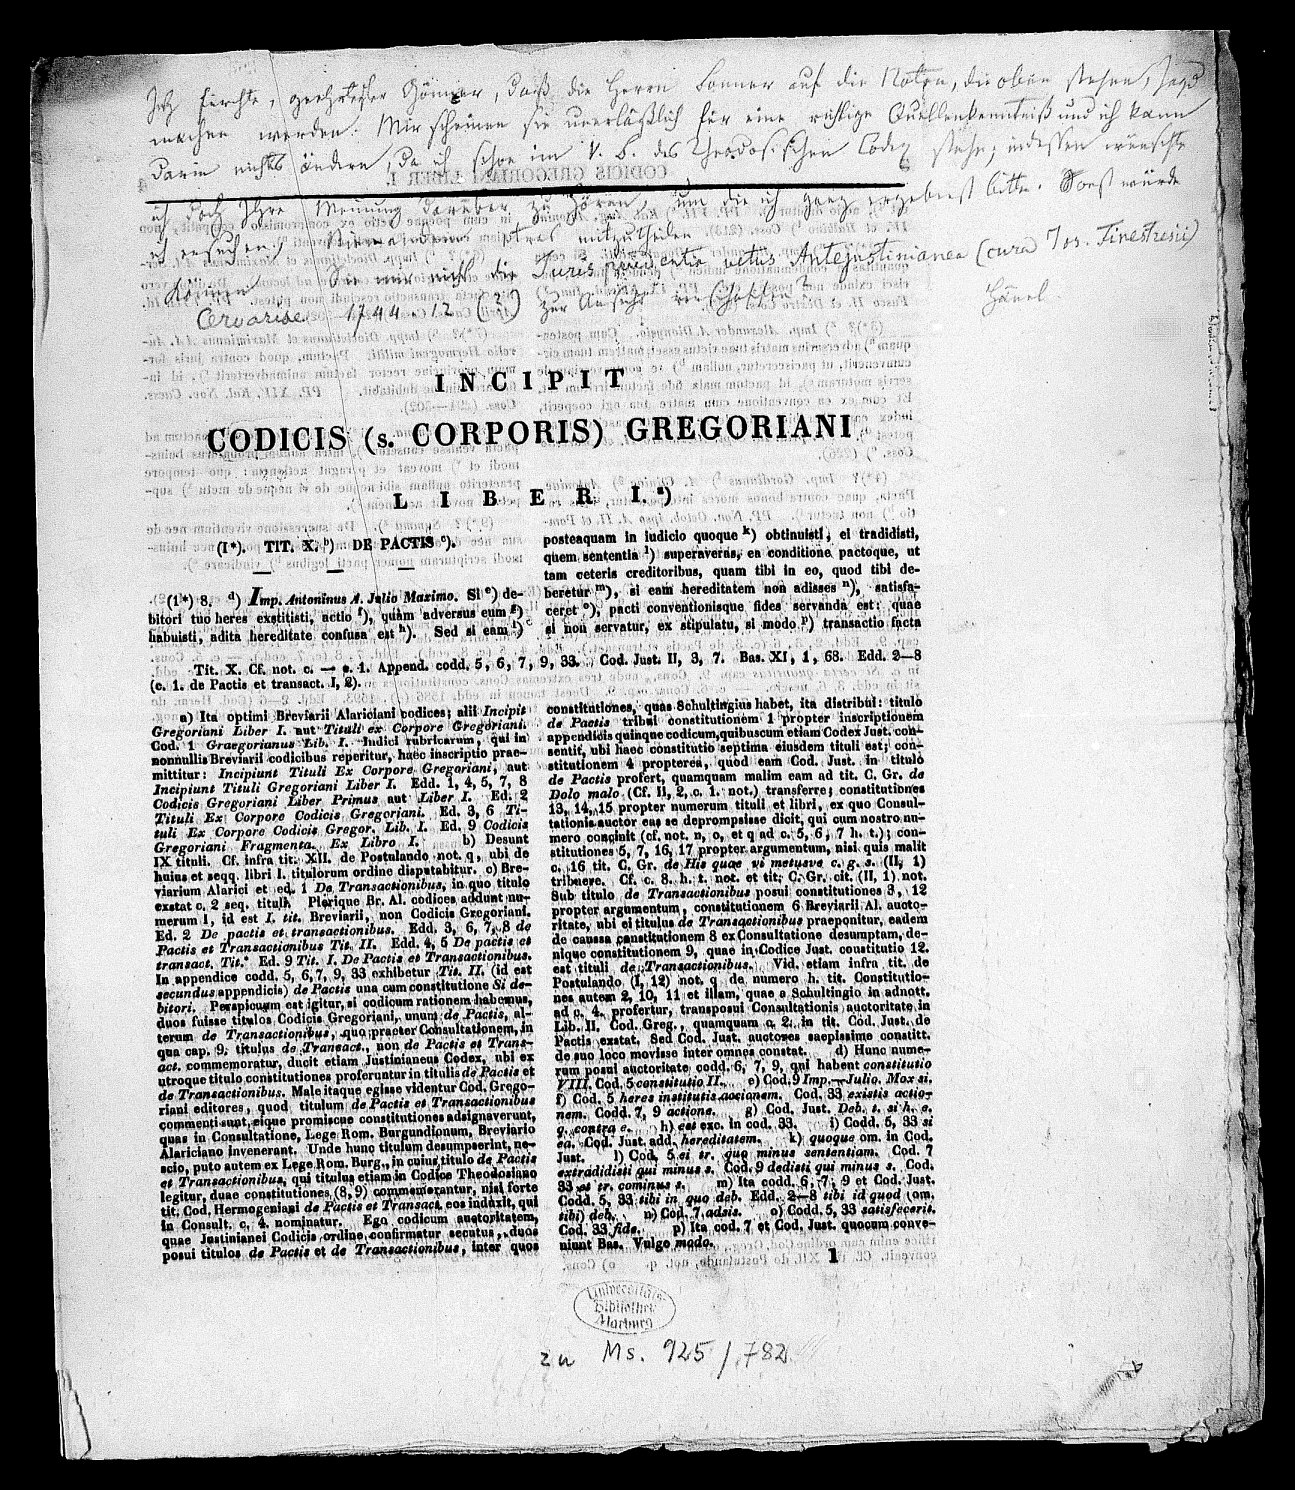 Ich fürchte, geehrtester Gönner, daß die Herrn Bonner auf die Noten, die oben stehen, Jagd
machen werden. Mir scheinen sie unerläßlich für eine richtige Quellenkenntniß und ich kann
darin nichts ändern, da ich schon im V. B. des Theodosischen Codex stehe; indessen wünschte
ich doch Ihre Meinung darüber zu hören, um die ich ganz ergebenst bitte. Sonst würde
ich ersuchen, Niemandem etwas mitzutheilen.
Können Sie mir nicht die Jurisprudentia vetus Antejustinianea (cura Jos. Finestresii)
Cervariae 1744. 12 (2?) zur Ansicht verschaffen?
Hänel.
INCIPIT
CODICIS (s. CORPORIS) GREGORIANI
LIBER I. a)
(I*). TIT. X. b) DE PACTIS c).
(1*) 8. d) Imp. Antoninus A. Julio Maximo. Si e) de-
bitori tuo heres exstitisti, actio f), quam adversus eum g)
habuisti, adita hereditate confusa est h). Sed si eam i)
posteaquam in iudicio quoque k) obtinuisti, ei tradidisti,
quem sententia l) superaveras, ea conditione pactoque, ut
tam ceteris creditoribus, quam tibi in eo, quod tibi de-
beretur m), si eam hereditatem non adisses n), satisfa-
ceret o), pacti conventionisque fides servanda est: quae
si non servatur, ex stipulatu, si modo p) transactio facta
Tit. X. Cf. not. c. — c. 1. Append. codd. 5, 6, 7, 9, 33. Cod. Just. II, 3, 7. Bas. XI, 1, 68. Edd. 2—8
(c. 1. de Pactis et transact. I, 2).
a) Ita optimi Breviarii Alariciani codices; alii Incipit
Gregoriani Liber I. aut Tituli ex Corpore Gregoriani.
Cod. 1 Graegorianus Lib. I. Indici rubricarum, qui in
nonnullis Breviarii codicibus reperitur, haec inscriptio prae-
mittitur: Incipiunt Tituli Ex Corpore Gregoriani, aut
Incipiunt Tituli Gregoriani Liber I. Edd. 1, 4, 5, 7, 8
Codicis Gregoriani Liber Primus aut Liber I. Ed. 2
Tituli Ex Corpore Codicis Gregoriani. Ed. 3, 6 Ti-
tuli Ex Corpore Codicis Gregor. Lib. I. Ed. 9 Codicis
Gregoriani Fragmenta. Ex Libro I. b) Desunt
IX tituli. Cf. infra tit. XII. de Postulando not. q, ubi de
huius et seqq. libri I. titulorum ordine disputabitur. c) Bre-
viarium Alarici et ed. 1 De Transactionibus, in quo titulo
exstat c. 2 seq. tituli. Plerique Br. Al. codices addunt nu-
merum I, id est I. tit. Breviarii, non Codicis Gregoriani.
Ed. 2 De pactis et transactionibus. Edd. 3, 6, 7, 8 de
Pactis et Transactionibus Tit. II. Edd. 4, 5 De pactis et
transact. Tit. Ed. 9 Tit. I. De Pactis et Transactionibus.
In appendice codd. 5, 6, 7, 9, 33 exhibetur Tit. II. (id est
secundus appendicis) de Pactis una cum constitutione Si de-
bitori. Perspicuum est igitur, si codicum rationem habemus,
duos fuisse titulos Codicis Gregoriani, unum de Pactis, al-
terum de Transactionibus, quo praeter Consultationem, in
qua cap. 9. titulus de Transact. non de Pactis et Trans-
act. commemoratur, ducit etiam Justinianeus Codex, ubi ex
utroque titulo constitutiones proferuntur in titulis de Pactis et
de Transactionibus. Male itaque egisse videntur Cod. Grego-
riani editores, quod titulum de Pactis et Transactionibus
commenti sunt, eique promiscue constitutiones adsignaverunt,
quas in Consultatione, Lege Rom. Burgundionum, Breviario
Alariciano invenerant. Unde hunc titulum desumpserint, ne-
scio, puto autem ex Lege Rom. Burg., in cuius titulo de Pactis
et Transactionibus, qui titulus etiam in Codice Theodosiano
legitur, duae constitutiones (8, 9) commemorantur, nisi forte
tit. Cod. Hermogeniani de Pactis et Transact. eos induxit, qui
in Consult. c. 4. nominatur. Ego codicum auctoritatem,
quae Justinianei Codicis ordine confirmatur secutus, duos
posui titulos de Pactis et de Transactionibus, inter quos
constitutiones, quas Schultingius habet, ita distribui: titulo
de Pactis tribui constitutionem 1 propter inscriptionem
appendicis quinque codicum, quibuscum etiam Codex Just. con-
sentit, ubi haec constitutio septima eiusdem tituli est; con-
stitutionem 4 propterea, quod eam Cod. Just. in titulo
de Pactis profert, quamquam malim eam ad tit. C. Gr. de
Dolo malo (Cf. II, 2, c. 1. not.) transferre; constitutiones
13, 14, 15 propter numerum tituli et libri, ex quo Consul-
tationis auctor eas se deprompsisse dicit, qui cum nostro nu-
mero concinit (cf. not. n, o, et q ad c. 5, 6, 7 h. t.); con-
stitutiones 5, 7, 16, 17 propter argumentum, nisi quis malit
c. 16 tit. C. Gr. de His quae vi metusve c. g. s. (II, 1)
tribuere. Cf. c. 8. h. t. not. et tit. C. Gr. cit. (II, 1) not.
Sub titulo de Transactionibus posui constitutiones 3, 12
propter argumentum, constitutionem 6 Breviarii Al. aucto-
ritate, ubi ei titulus de Transactionibus praeponitur, eadem
de caussa constitutionem 8 ex Consultatione desumptam, de-
nique constitutionem 9, quae in Codice Just. constitutio 12.
est tituli de Transactionibus. Vid. etiam infra tit. de
Postulando (I, 12) not. q de numero h. tit. Constitutio-
nes autem 2, 10, 11 et illam, quae a Schultingio in adnott.
ad c. 4. profertur, transposui Consultationis auctoritate in
Lib. II. Cod. Greg., quamquam c. 2. in tit. Cod. Just. de
Pactis exstat. Sed Cod. Just. auctores saepissime constitt.
de suo loco movisse inter omnes constat. d) Hunc nume-
rum posui auctoritate codd. 6, 7, 9, qui habent constitutio
VIII. Cod. 5 constitutio II. e) Cod. 9 Imp.—Julio. Mox si.
f) Cod. 5 heres institutis accionem. Cod. 33 existis actio-
nem. Codd. 7, 9 actione. g) Cod. Just. Deb. t. si h. e.
q. contra e. h) est exc. in cod. 33. i) Codd. 5, 33 si
ea. Cod. Just. add. hereditatem. k) quoque om. in Cod.
Just. l) Cod. 5 ei tr. quo minus sententiam. Cod. 7
extradidisti qui minus s. Cod. 9 dedisti qui minus s. Cod.
33 es tr. cominus s. m) Ita codd. 6, 7, 9 et Cod. Just.
Codd. 5, 33 tibi in quo deb. Edd. 2—8 tibi id quod (om.
tibi) deb. n) Cod. 7 adsis. o) Codd. 5, 33 satisfecerit.
Cod. 33 fide. p) Ita cod. 7 et Cod. Just. quocum conve-
niunt Bas. Vulgo modo.
1
Universitäts
Bibliothek
Marburg
zu Ms. 925/782